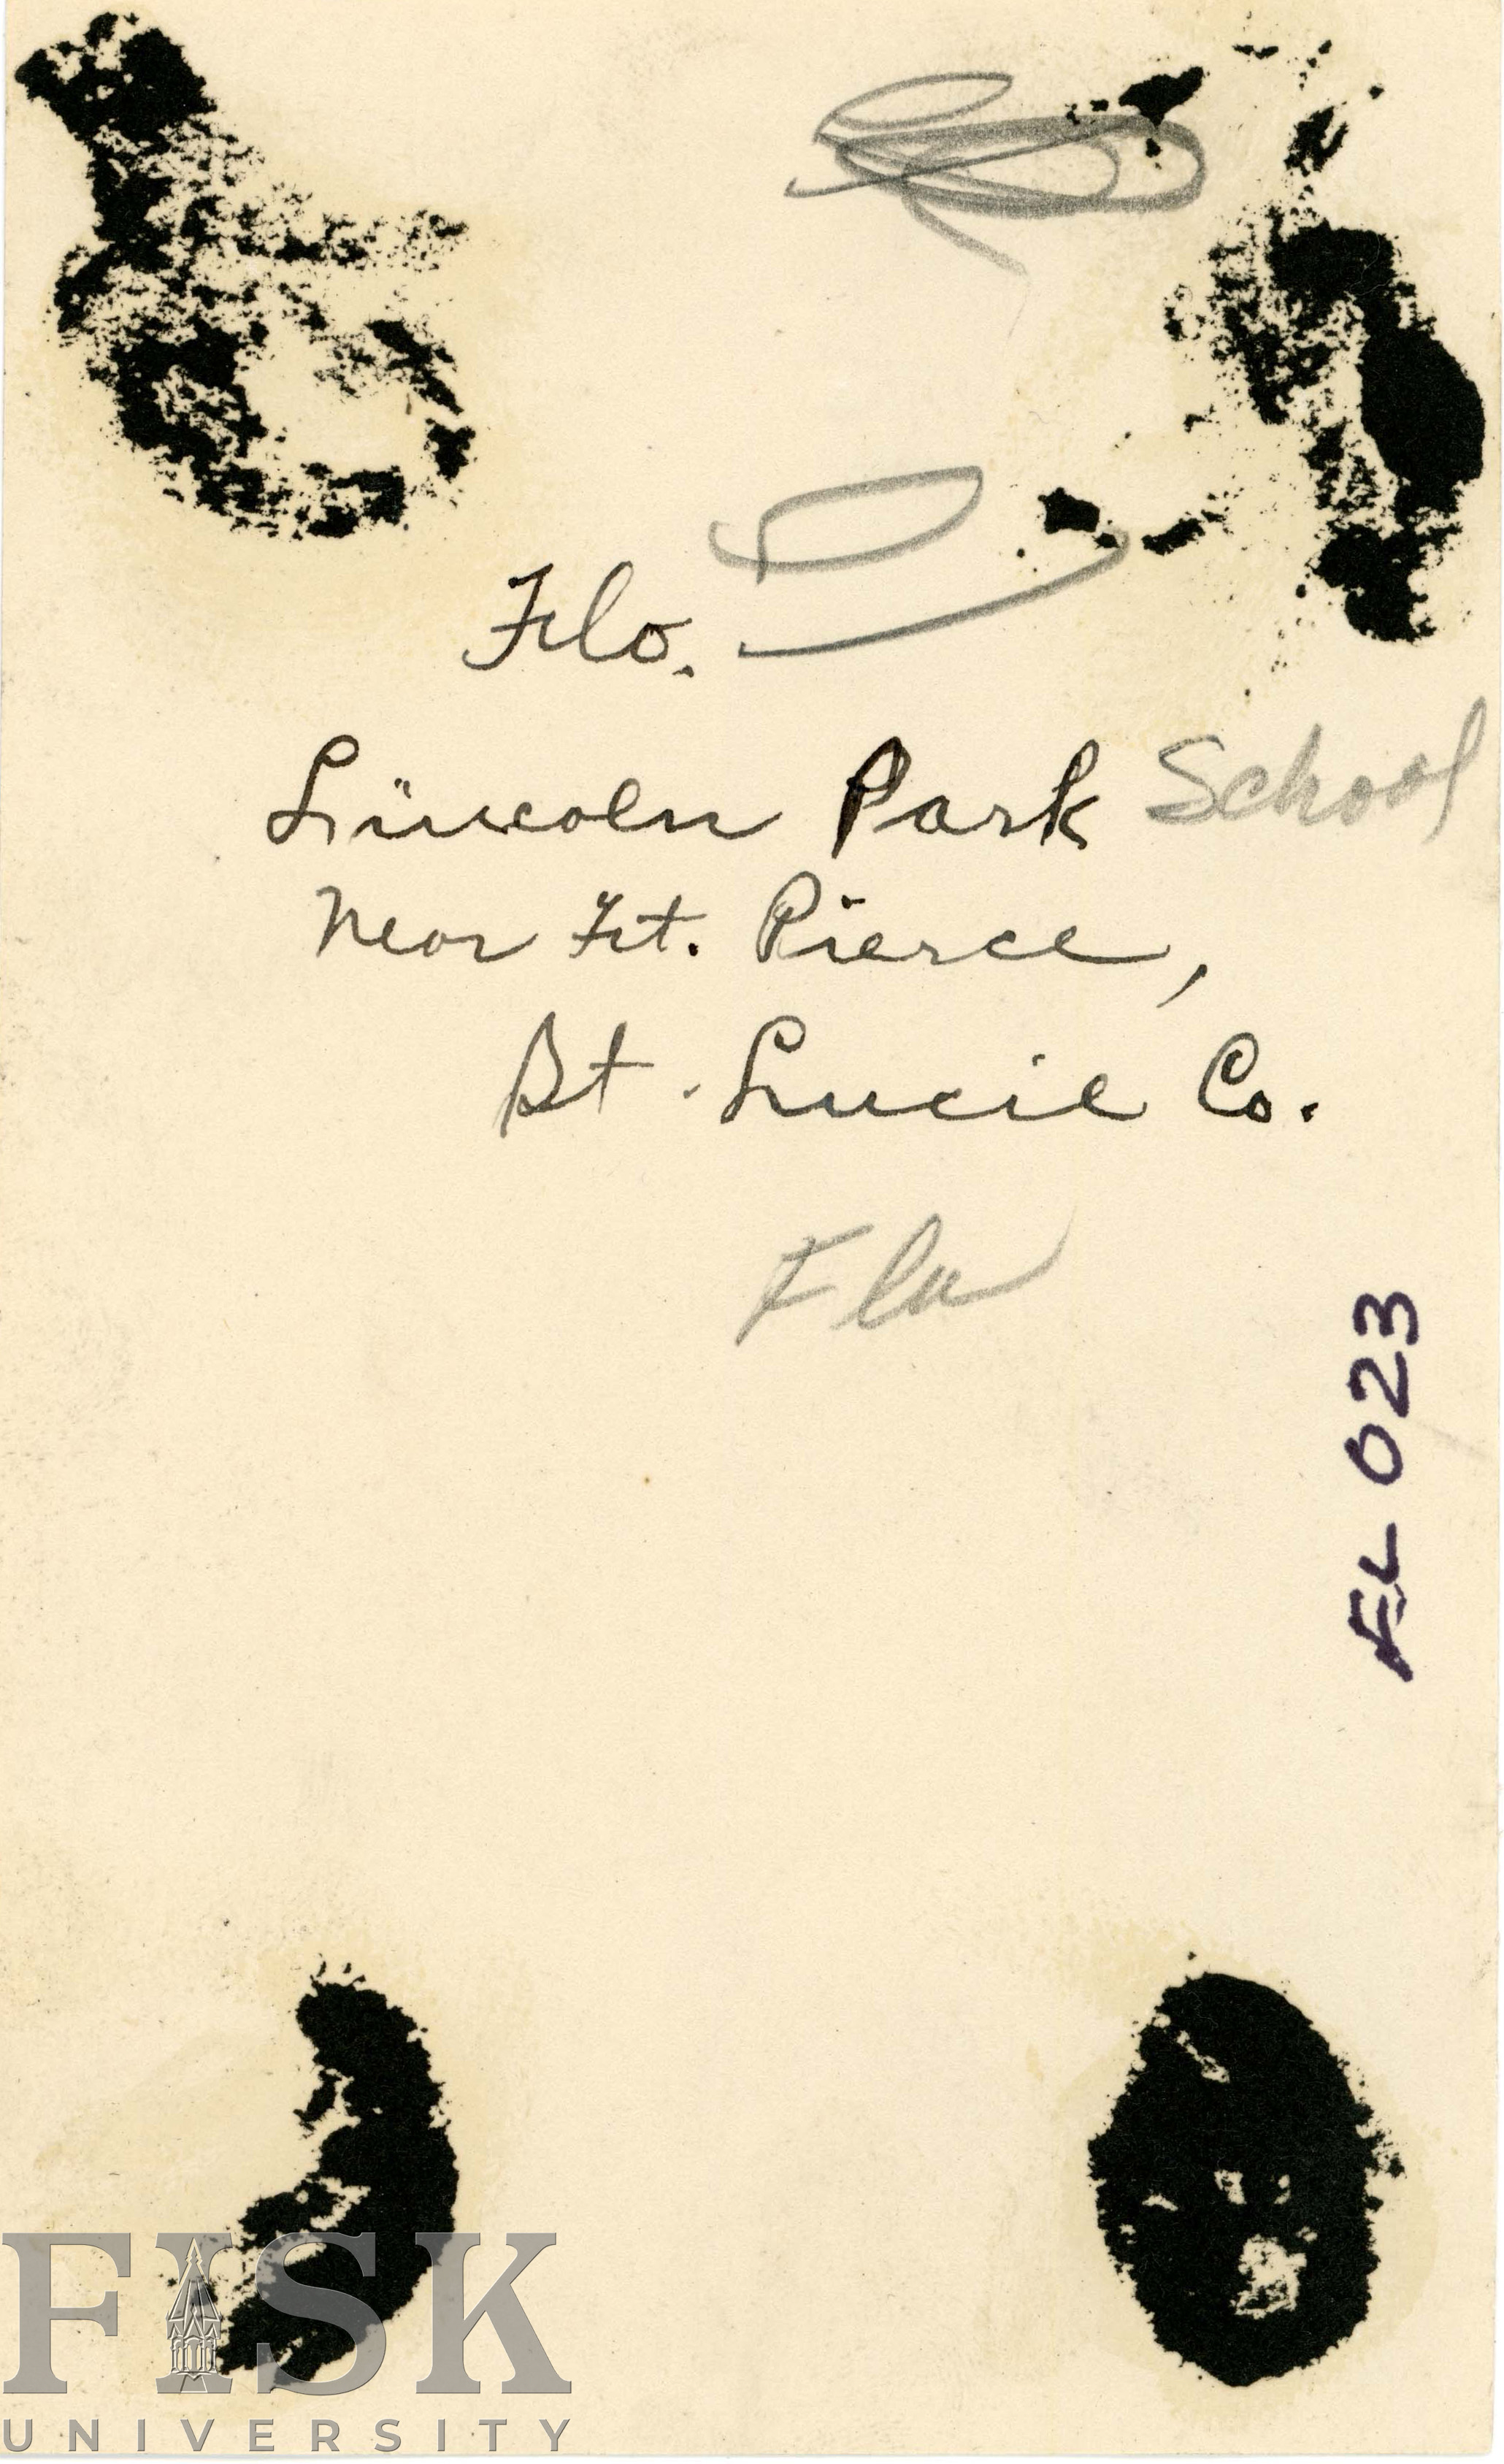 Flo.
Lincoln Park School
Near Ft. Pierce,
St. Lucie Co.
Fla
FL 023
FISK
UNIVERSITY